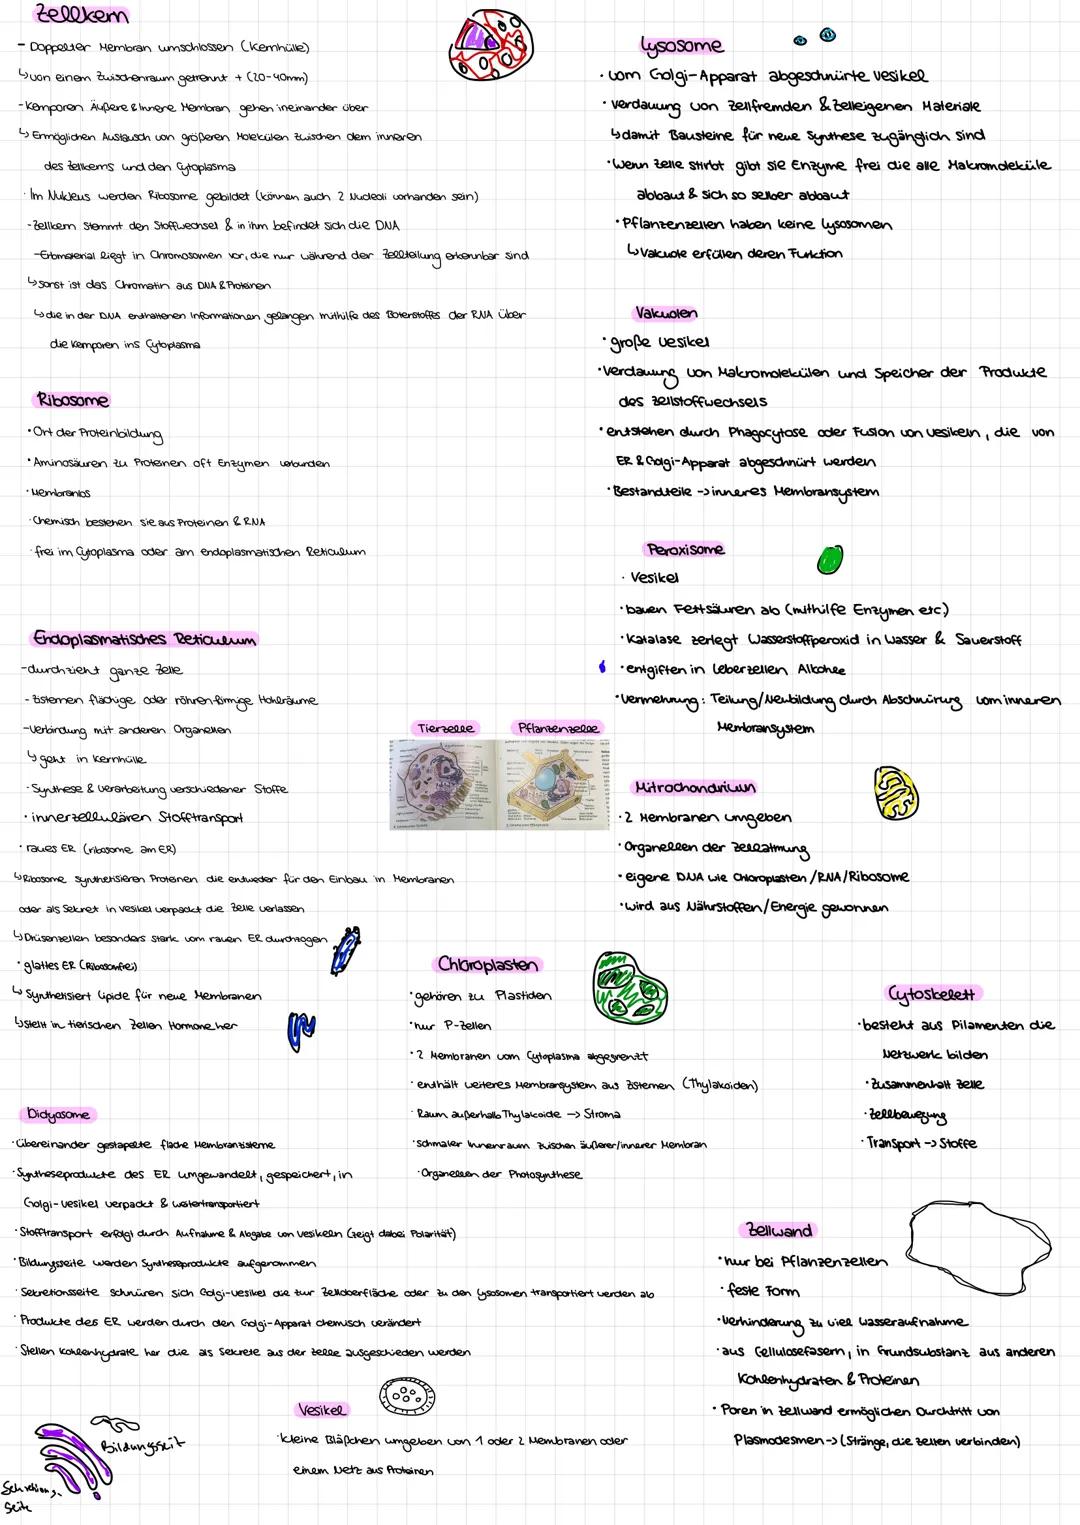 Zellkern
- Doppelter Membran umschlossen (Kernhülle)
↳ von einem Zwischenraum getrennt + (20-40mm)
- Kernporen Äußere & Innere Membran gehen ineinander über
↳ Ermöglichen Austausch von größeren Molekülen zwischen dem inneren
des Zellkerns und den Cytoplasma
· Im Nukleus werden Ribosome gebildet (können auch 2 Nucleoli vorhanden sein)
- Zellkern stemmt den Stoffwechsel & in ihm befindet sich die DNA
- Erbmaterial liegt in Chromosomen vor, die nur während der Zellteilung erkennbar sind
↳ sonst ist das Chromatin aus DNA & Proteinen
↳ die in der DNA enthaltenen Informationen gelangen mithilfe des Botenstoffes der RNA über
die Kernporen ins Cytoplasma
Ribosome
· Ort der Proteinbildung
· Aminosäuren zu Proteinen oft Enzymen verbunden
· Membranlos
· Chemisch bestehen sie aus Proteinen & RNA
· frei im Cytoplasma oder am endoplasmatischen Reticulum
Endoplasmatisches Reticulum
- durchzieht ganze Zelle
- Zisternen flächige oder röhren-förmige Hohlräume
- Verbindung mit anderen Organellen
↳ geht in Kernhülle
· Synthese & Verarbeitung verschiedener Stoffe
· innerzellulären Stofftransport
· raues ER (ribosome am ER)
↳ Ribosome synthetisieren Proteinen die entweder für den Einbau in Membranen
oder als Sekret in Vesikel verpackt die Zelle verlassen
↳ Drüsenzellen besonders stark vom rauen ER durchzogen
· glattes ER (Ribosomfrei)
↳ Synthetisiert Lipide für neue Membranen
↳ stellt in tierischen Zellen Hormone her
Didyosome
· übereinander gestapelte flache Membranzisterne
· Syntheseprodukte des ER umgewandelt, gespeichert, in
Golgi-Vesikel verpackt & weitertransportiert
· Stofftransport erfolgt durch Aufnahme & Abgabe von Vesikeln (zeigt dabei Polarität)
· Bildungsseite werden Syntheseprodukte aufgenommen
· Sekretionsseite schnüren sich Golgi-Vesikel die zur Zelloberfläche oder zu den Lysosomen transportiert werden ab
· Produkte des ER werden durch den Golgi-Apparat chemisch verändert
· Stellen Kohlenhydrate her die als Sekrete aus der Zelle ausgeschieden werden
Bildungsseit
Sekretions-
Seite
Vesikel
· kleine Bläßchen umgeben von 1 oder 2 Membranen oder
einem Netz aus Proteinen
Tierzelle
Pflanzenzelle
Chloroplasten
· gehören zu Plastiden
· nur P-Zellen
· 2 Membranen vom Cytoplasma abgegrenzt
· enthält weiteres Membransystem aus Zisternen (Thylakoiden)
· Raum außerhalb Thylakoide -> Stroma
· schmaler Innenraum zwischen äußerer/innerer Membran
· Organellen der Photosynthese
Lysosome
· vom Golgi-Apparat abgeschnürte Vesikel
· Verdauung von zellfremden & zelleigenen Materiale
↳ damit Bausteine für neue Synthese zugänglich sind
· Wenn Zelle stirbt gibt sie Enzyme frei die alle Makromoleküle
abbaut & sich so selber abbaut
· Pflanzenzellen haben keine Lysosomen
↳ Vakuole erfüllen deren Funktion
Vakuolen
· große Vesikel
· Verdauung von Makromolekülen und Speicher der Produkte
des Zellstoffwechsels
· entstehen durch Phagocytose oder Fusion von Vesikeln, die von
ER & Golgi-Apparat abgeschnürt werden
· Bestandteile -> inneres Membransystem
Peroxisome
· Vesikel
· bauen Fettsäuren ab (mithilfe Enzymen etc.)
· Katalase zerlegt Wasserstoffperoxid in Wasser & Sauerstoff
· entgiften in Leberzellen Alkohle
· Vermehrung: Teilung/Neubildung durch Abschnürung vom inneren
Membransystem
Mitrochondrium
· 2 Membranen umgeben
· Organellen der Zellatmung
· eigene DNA wie Chloroplasten /RNA/Ribosome
· wird aus Nährstoffen/Energie gewonnen
Cytoskelett
· besteht aus Pilamenten die
Netzwerk bilden
· Zusammenhalt Zelle
· Zellbewegung
· Transport -> Stoffe
Zellwand
· nur bei Pflanzenzellen
· feste Form
· Verhinderung zu viel Wasseraufnahme
· aus Cellulosefasern, in Grundsubstanz aus anderen
Kohlenhydraten & Proteinen
· Poren in Zellwand ermöglichen Durchtritt von
Plasmodesmen -> (Stränge, die Zellen verbinden)